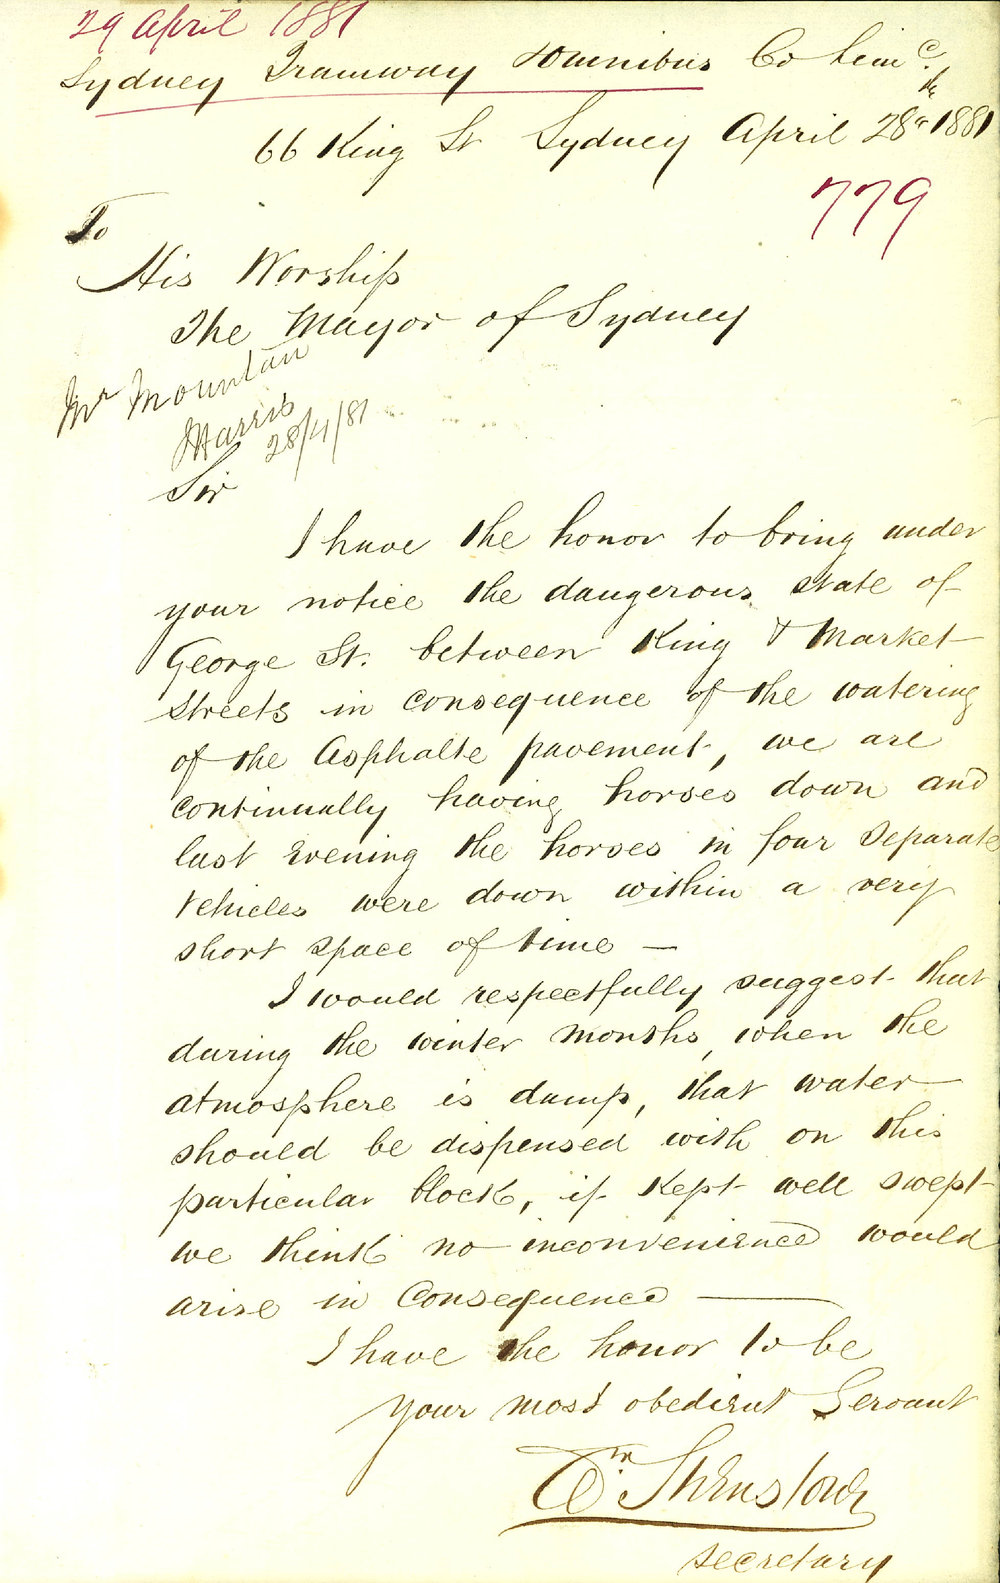 29 April 1881
Sydney Tramway & Omnibus Co Lim
66 King St Sydney April 28 1881
779
To
His Worship
The Mayor of Sydney
Mr Mountain
Harris
28/4/81
Sir
I have the honor to bring under
your notice the dangerous state of
George St. between King & Market
Streets in consequence of the watering
of the Asphalte pavement, we are
continually having horses down and
last Evening the horses in four Separate
Vehicles were down within a very
short space of time —
I would respectfully suggest that
during the winter months, when the
atmosphere is damp, that water
should be dispensed with on this
particular block, if kept well swept
we think no inconvenience would
arise in Consequence —
I have the honor to be
your most obedient Servant
Shenstone
Secretary